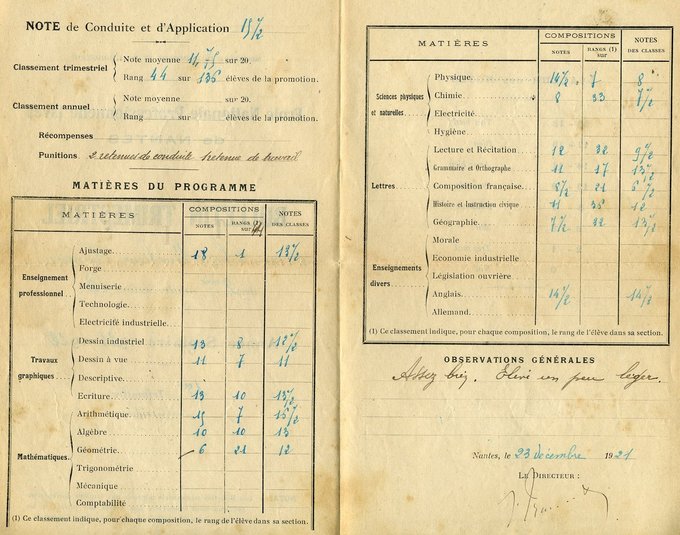 NOTE de Conduite et d'Application 15 1/2
Classement trimestriel { Note moyenne 11,75 sur 20.
Rang 44 sur 136 élèves de la promotion.
Classement annuel { Note moyenne sur 20.
Rang sur élèves de la promotion.
Récompenses
Punitions 2 retenues de conduite retenue de travail
MATIÈRES DU PROGRAMME
MATIÈRES COMPOSITIONS NOTES DES CLASSES
NOTES RANGS (1) sur
Enseignement professionnel
Ajustage 18 1 13 1/2
Forge
Menuiserie
Technologie
Electricité industrielle
Travaux graphiques
Dessin industriel 13 8 12 1/2
Dessin à vue 11 7 11
Descriptive
Ecriture 13 10 13 1/2
Mathématiques
Arithmétique 15 7 15 1/2
Algèbre 10 10 13
Géométrie 6 21 12
Trigonométrie
Mécanique
Comptabilité
(1) Ce classement indique, pour chaque composition, le rang de l'élève dans sa section.
MATIÈRES COMPOSITIONS NOTES DES CLASSES
NOTES RANGS (1) sur
Sciences physiques et naturelles
Physique 14 1/2 7 8
Chimie 8 33 7 1/2
Electricité
Hygiène
Lettres
Lecture et Récitation 12 32 9 1/2
Grammaire et Orthographe 11 17 13 1/2
Composition française 8 1/2 21 6 1/2
Histoire et Instruction civique 11 35 12
Géographie 7 1/2 32 13 1/2
Enseignements divers
Morale
Economie industrielle
Législation ouvrière
Anglais 14 1/2 14 1/2
Allemand
(1) Ce classement indique, pour chaque composition, le rang de l'élève dans sa section.
OBSERVATIONS GÉNÉRALES
Assez bien. Elève un peu léger.
Nantes, le 23 décembre 1921
LE DIRECTEUR :